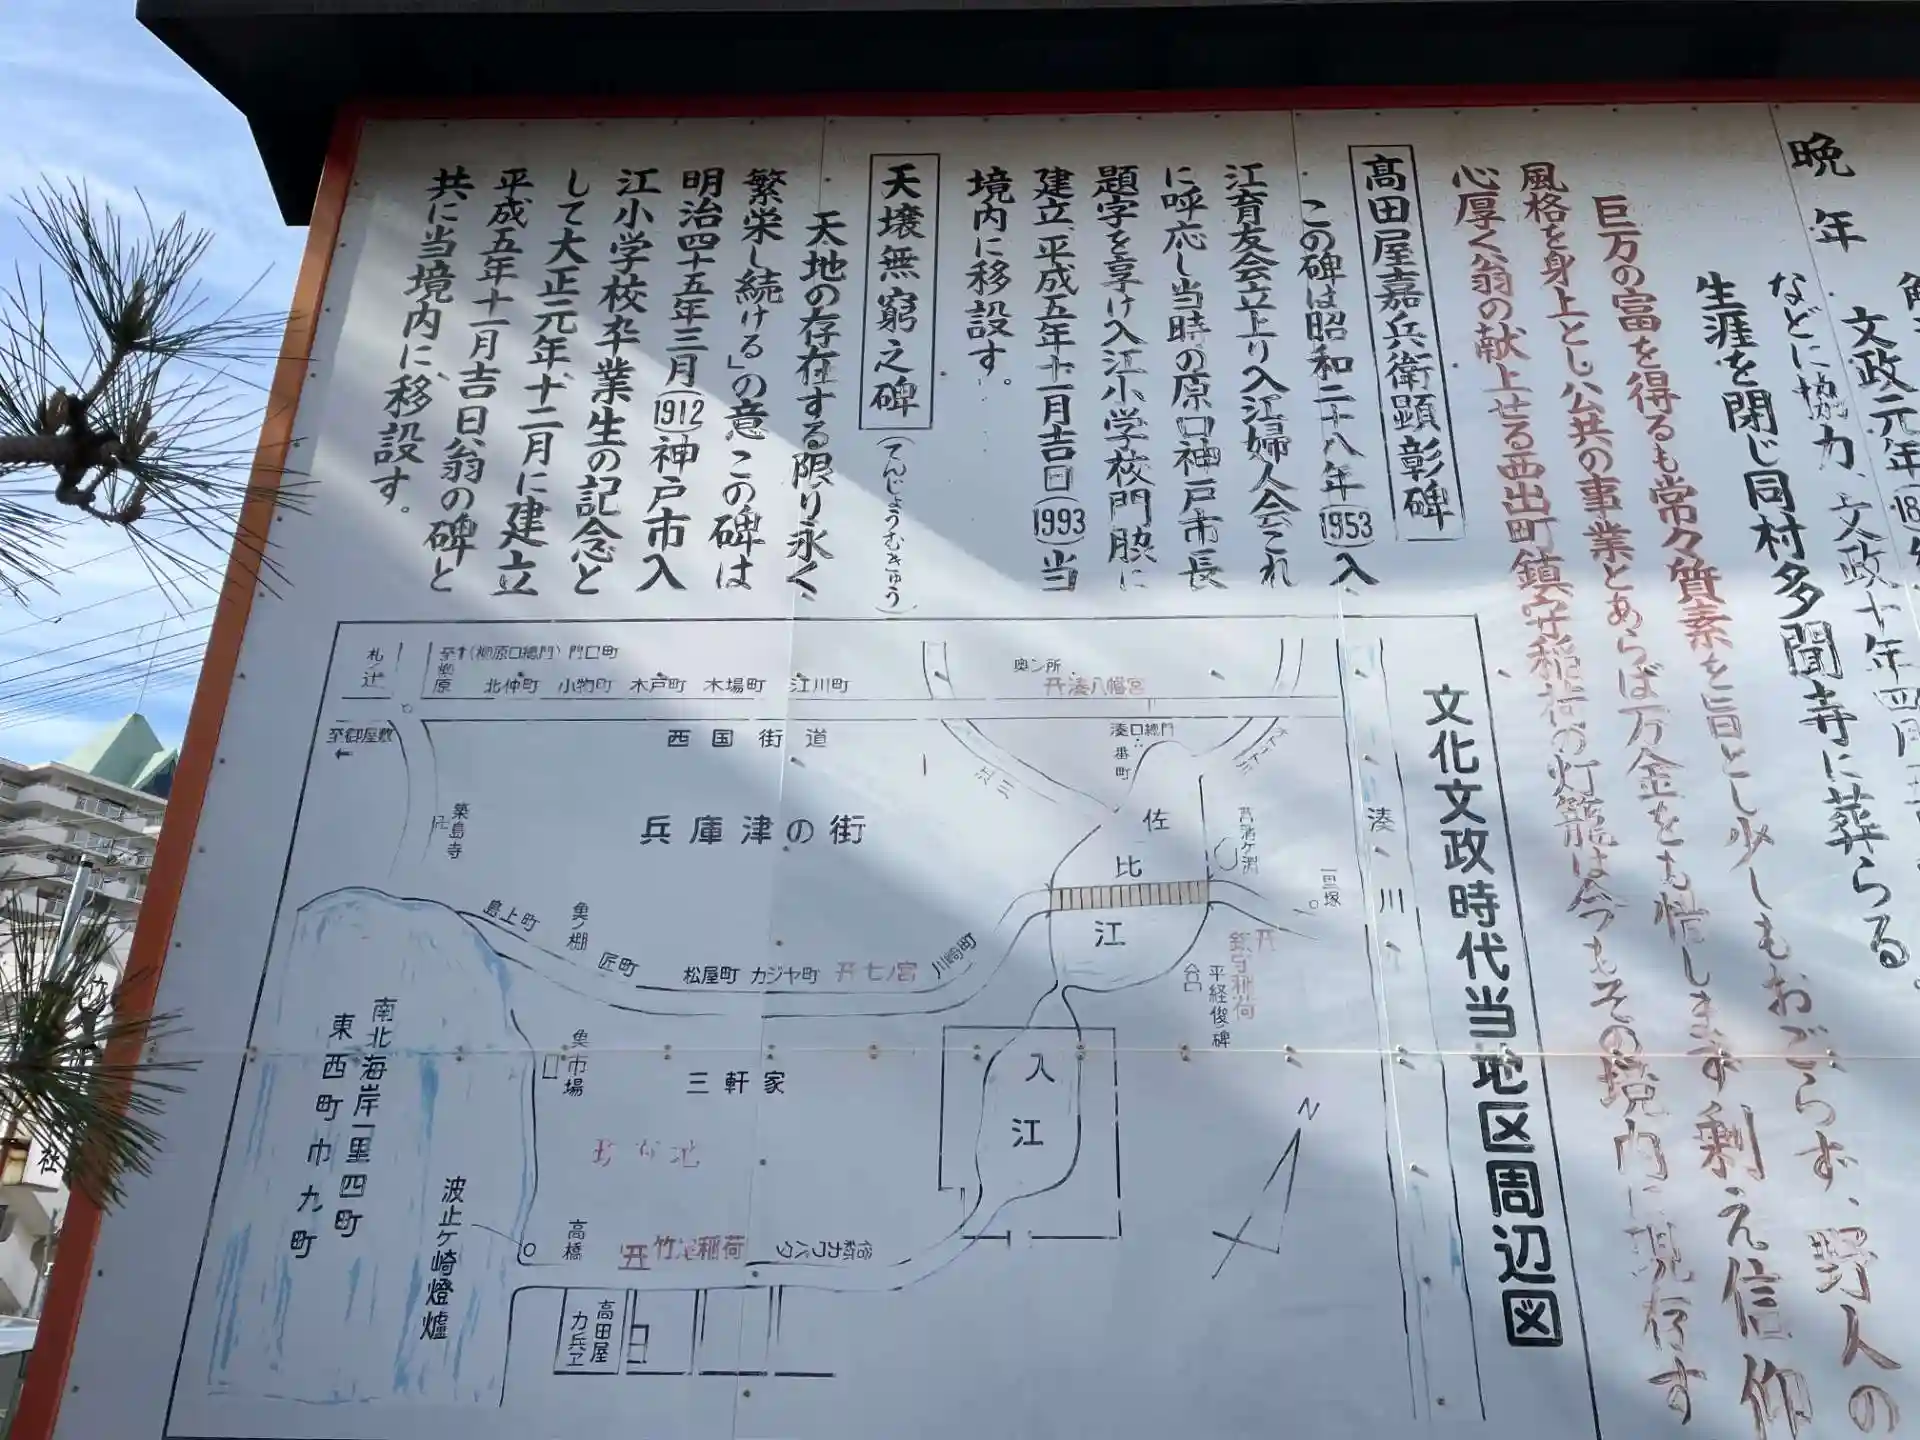 晩年
文政元年
などに協力、文政十年四月
生涯を閉じ同村多聞寺に葬らる。
巨万の富を得るも常々質素を旨とし少しもおごらず、野人の
風格を身上とし公共の事業とあらば万金をも惜しまず剰え信仰
心厚く翁の献上せる西出町鎮守稲荷の灯籠は今もその境内に現存す
髙田屋嘉兵衛顕彰碑
この碑は昭和二十八年(1953)入
江育友会立上り入江婦人会これ
に呼応し当時の原口神戸市長
題字を享け入江小学校門脇に
建立、平成五年十一月吉日(1993)当
境内に移設す。
天壌無窮之碑
(てんじょうむきゅう)
天地の存在する限り永く
繁栄し続ける」の意 この碑は
明治四十五年三月(1912)神戸市入
江小学校卒業生の記念と
して大正元年十二月に建立
平成五年十一月吉日翁の碑と
共に当境内に移設す。
文化文政時代当地区周辺図
札ノ辻
至柳原
(柳原口總門)門口町
北仲町
小物町
木戸町
木場町
江川町
奥ン所
湊八幡宮
至御屋敷
西国街道
湊口總門
一番町
築島寺
兵庫津の街
佐比江
菖蒲ケ淵
湊川
一里塚
島上町
魚ノ棚
匠町
松屋町
カジヤ町
七ノ宮
川崎町
鎮守稲荷
平経俊ノ碑
南北海岸一里四町
東西町巾九町
魚市場
三軒家
入江
N
波止ケ崎燈爐
高橋
竹尼稲荷
高田屋
カ兵ヱ